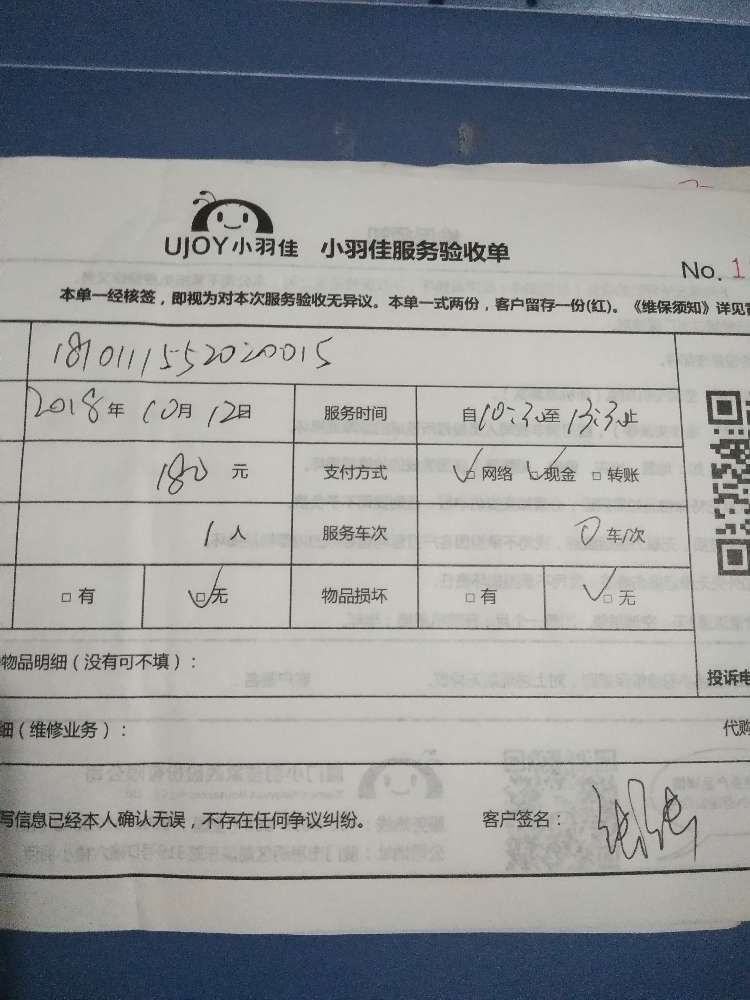 UJOY小羽佳 小羽佳服务验收单
No. 1
本单一经核签，即视为对本次服务验收无异议。本单一式两份，客户留存一份(红)。《维保须知》详见
1810111552020015
2018年 10月 12日 服务时间 自10:30至13:30止
180 元 支付方式 □ 网络 □ 现金 □ 转账
1 人 服务车次 0 车/次
□ 有 □ 无 物品损坏 □ 有 □ 无
物品明细（没有可不填）：
投诉电
细（维修业务）：
代购
写信息已经本人确认无误，不存在任何争议纠纷。 客户签名：